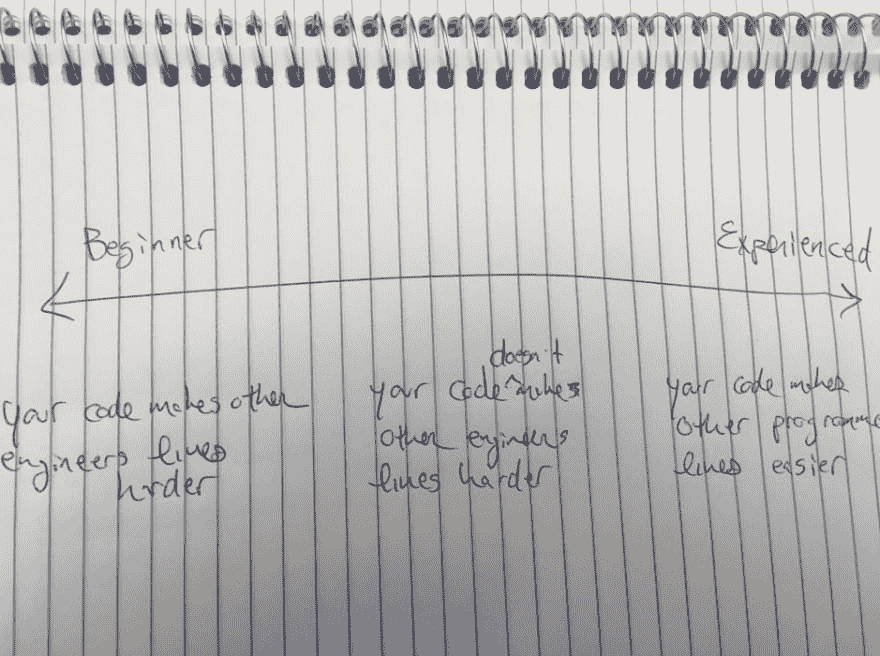 Beginner
Experienced
your code makes other
engineers lives
harder
doesn't
your code ^ makes
other engineers
lives harder
your code makes
other programme
lives easier